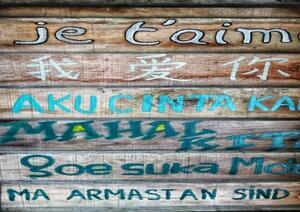 je t'aime
我爱你
AKU CINTA KA
MAHAL
KIT
goe suka Mo
MA ARMASTAN SIND